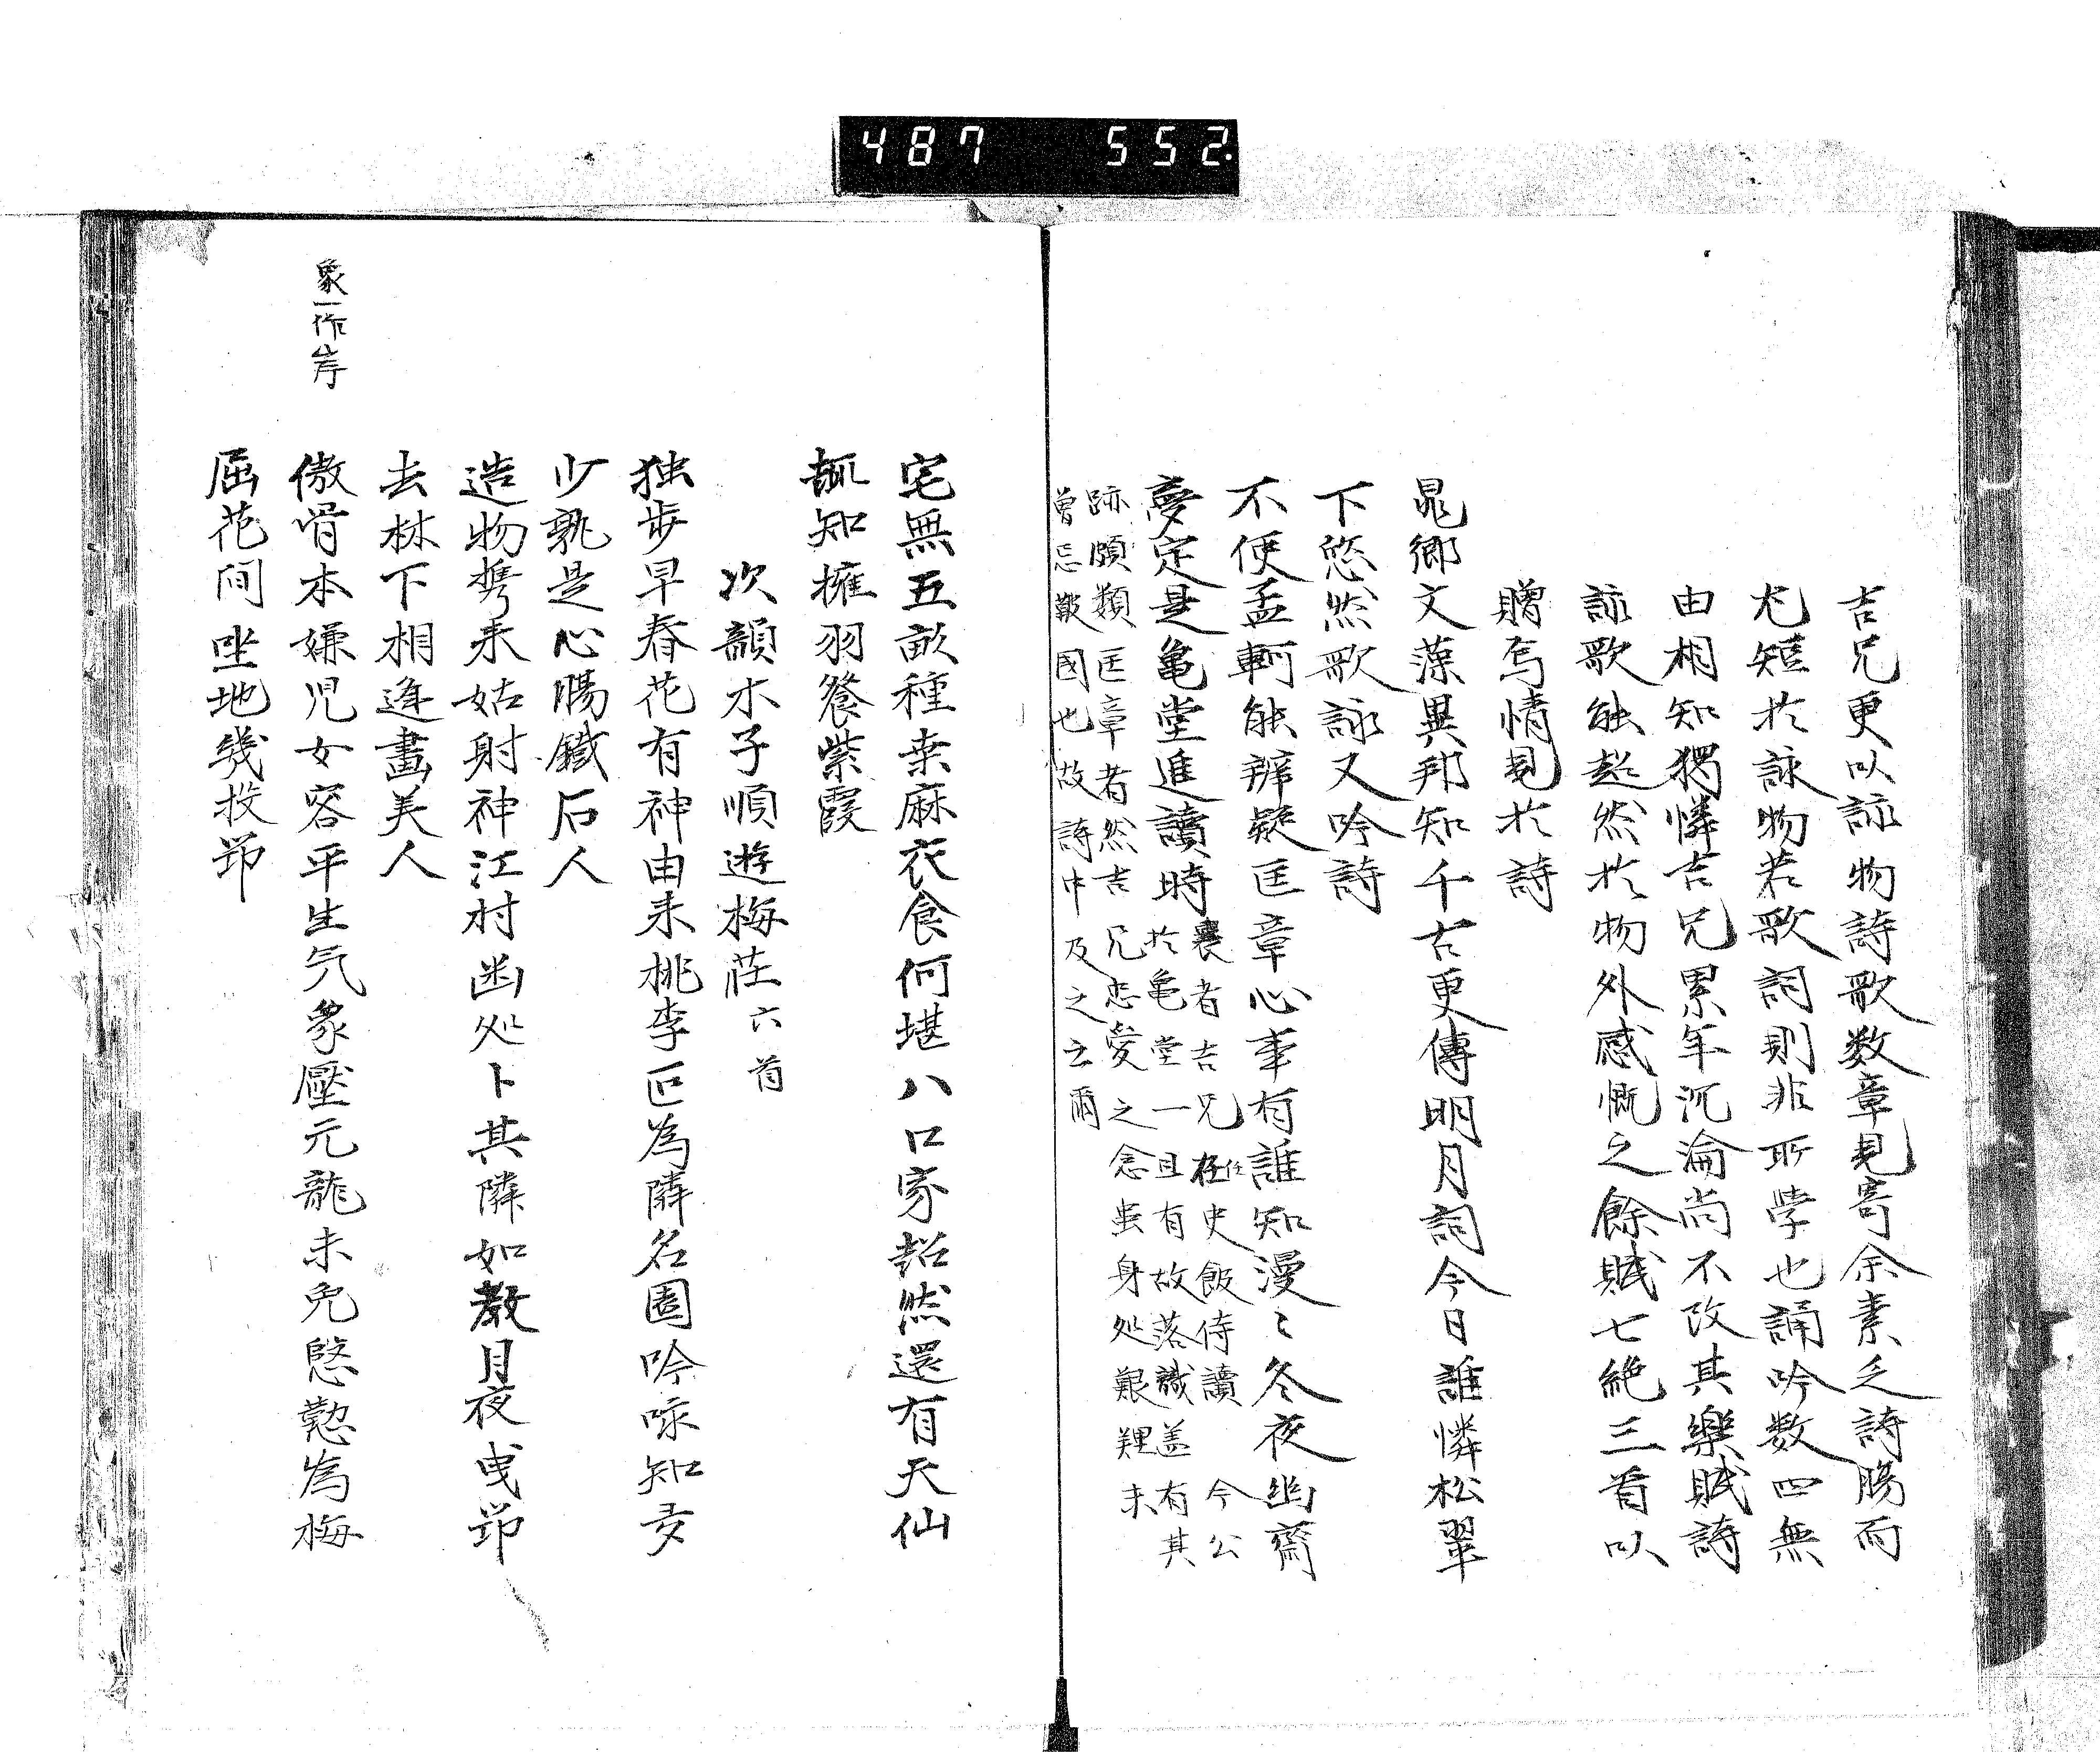 487 552
吉兄更以詠物詩歌数章見寄余素乏詩腸而
尤短於詠物若歌詞則非所学也誦吟数四無
由相知獨憐吉兄累年沉淪尚不改其樂賦詩
詠歌能超然於物外感慨之餘賦七絶三首以
贈焉情見於詩
晁卿文藻異邦知千古更傳明月詞今日誰憐松翠
下悠然歌詠又吟詩
不使孟軻能辨疑匡章心事有誰知漫〻冬夜幽齋
夢定是亀堂進讀時
曩者吉兄任史館侍讀 今公
於亀堂一旦有故落識盖有其
跡頗類匡章者然吉兄恋愛之念虽身処艱難未
曽忘報國也故詩中及之云爾
宅無五畝種桒麻衣食何堪八口家超然還有天仙
瓢知擁羽餐紫霞
次韻木子順遊梅莊六首
独步早春花有神由来桃李叵為隣名園吟咏知多
少孰是心腸鐵石人
造物携来姑射神江村幽処卜其隣如教月夜曳筇
去林下相逢畫美人
傲骨本嫌児女容平生気象壓元龍未免慇懃為梅
屈花間坐地幾投筇
象一作岸